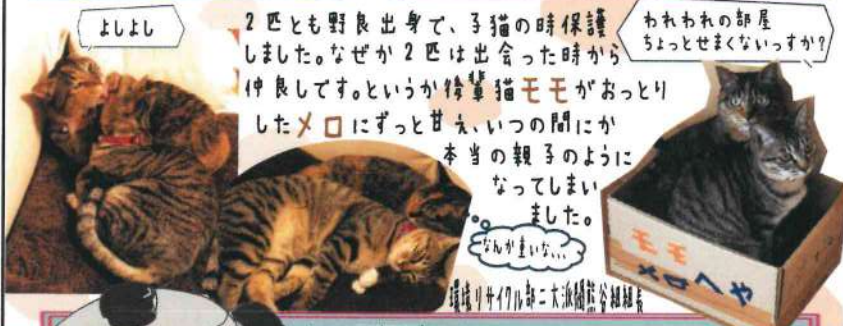 よしよし
2匹とも野良出身で、子猫の時保護
しました。なぜか2匹は出会った時から
仲良しです。というか後輩猫モモがおっとり
したメロにずっと甘え、いつの間にか
本当の親子のように
なってしまい
ました。
われわれの部屋
ちょっとせまくないっすか?
なんか重いな...
モモ
メロへや
環境リサイクル部二大派閥熊谷組組長